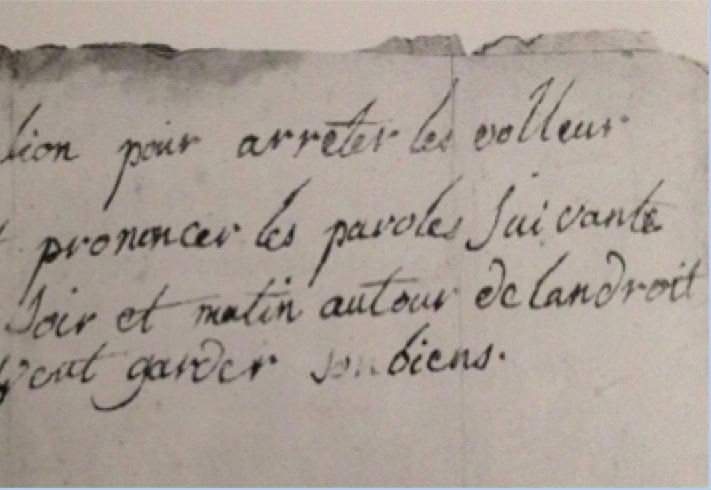 tion pour arrêter les volleur
prononcer les paroles suivante
soir et matin autour de landroit
veut garder son biens.